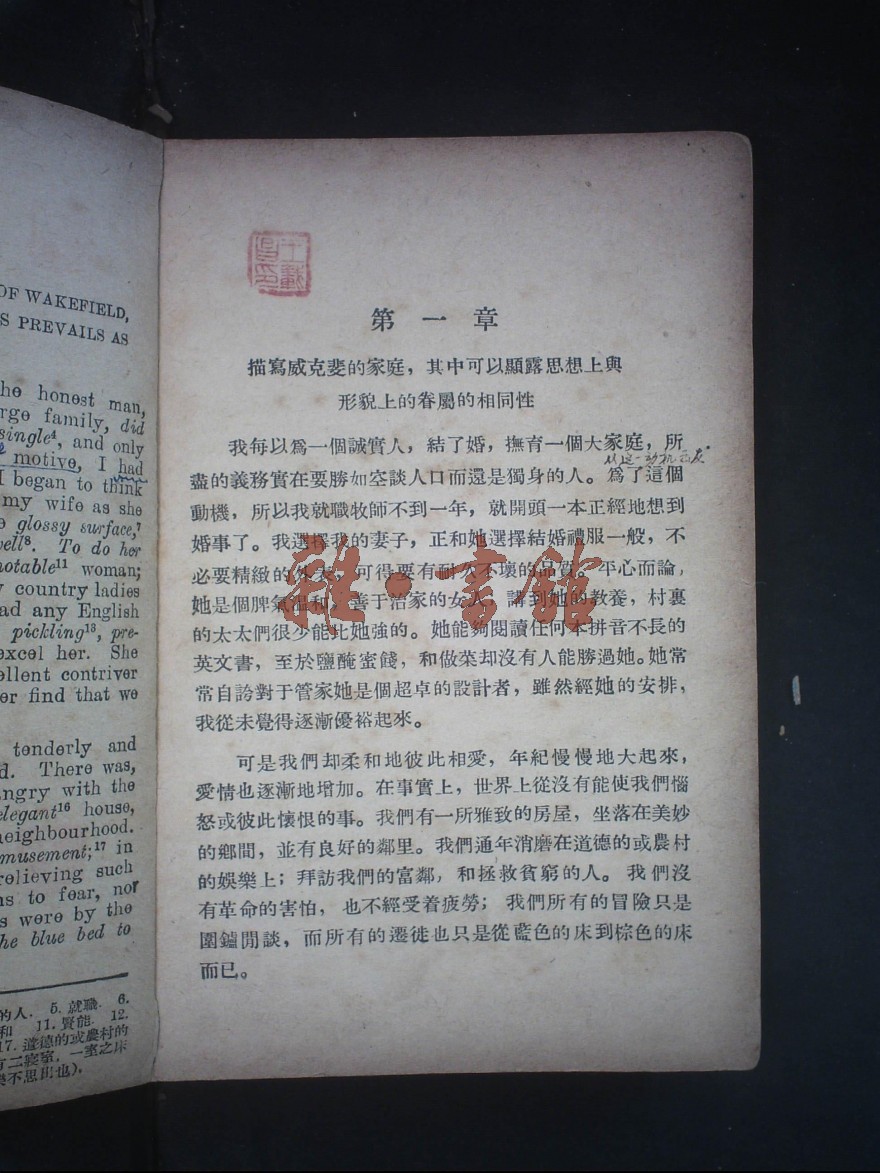 OF WAKEFIELD,
S PREVAILS AS
he honest man,
rge family, did
single⁴, and only
motive, I had
I began to think
my wife as she
glossy surface,⁷
well⁸. To do her
notable¹¹ woman;
country ladies
ad any English
pickling¹³, pre-
excel her. She
ellent contriver
er find that we
tenderly and
d. There was,
angry with the
elegant¹⁶ house,
neighbourhood.
amusement;¹⁷ in
relieving such
ns to fear, nor
s were by the
he blue bed to
的人. 5. 就職. 6.
和 11. 賢能. 12.
17. 道德的或農村的
有二寢室，一室之床
第一章
描寫威克斐的家庭，其中可以顯露思想上與
形貌上的眷屬的相同性
我每以爲一個誠實人，結了婚，撫育一個大家庭，所
盡的義務實在要勝如空談人口而還是獨身的人。爲了這個
動機，所以我就職牧師不到一年，就開頭一本正經地想到
婚事了。我選擇我的妻子，正和她選擇結婚禮服一般，不
必要精緻的外表，可得要有耐久不壞的品質。平心而論，
她是個脾氣溫和，善于治家的女人，講到她的教養，村裏
的太太們很少能比她強的。她能夠閱讀任何本拼音不長的
英文書，至於鹽醃蜜餞，和做菜却沒有人能勝過她。她常
常自誇對于管家她是個超卓的設計者，雖然經她的安排，
我從未覺得逐漸優裕起來。
可是我們却柔和地彼此相愛，年紀慢慢地大起來，
愛情也逐漸地增加。在事實上，世界上從沒有能使我們惱
怒或彼此懷恨的事。我們有一所雅致的房屋，坐落在美妙
的鄉間，並有良好的鄰里。我們通年消磨在道德的或農村
的娛樂上；拜訪我們的富鄰，和拯救貧窮的人。我們沒
有革命的害怕，也不經受着疲勞；我們所有的冒險只是
圍鑪閒談，而所有的遷徙也只是從藍色的床到棕色的床
而已。
雜·書館